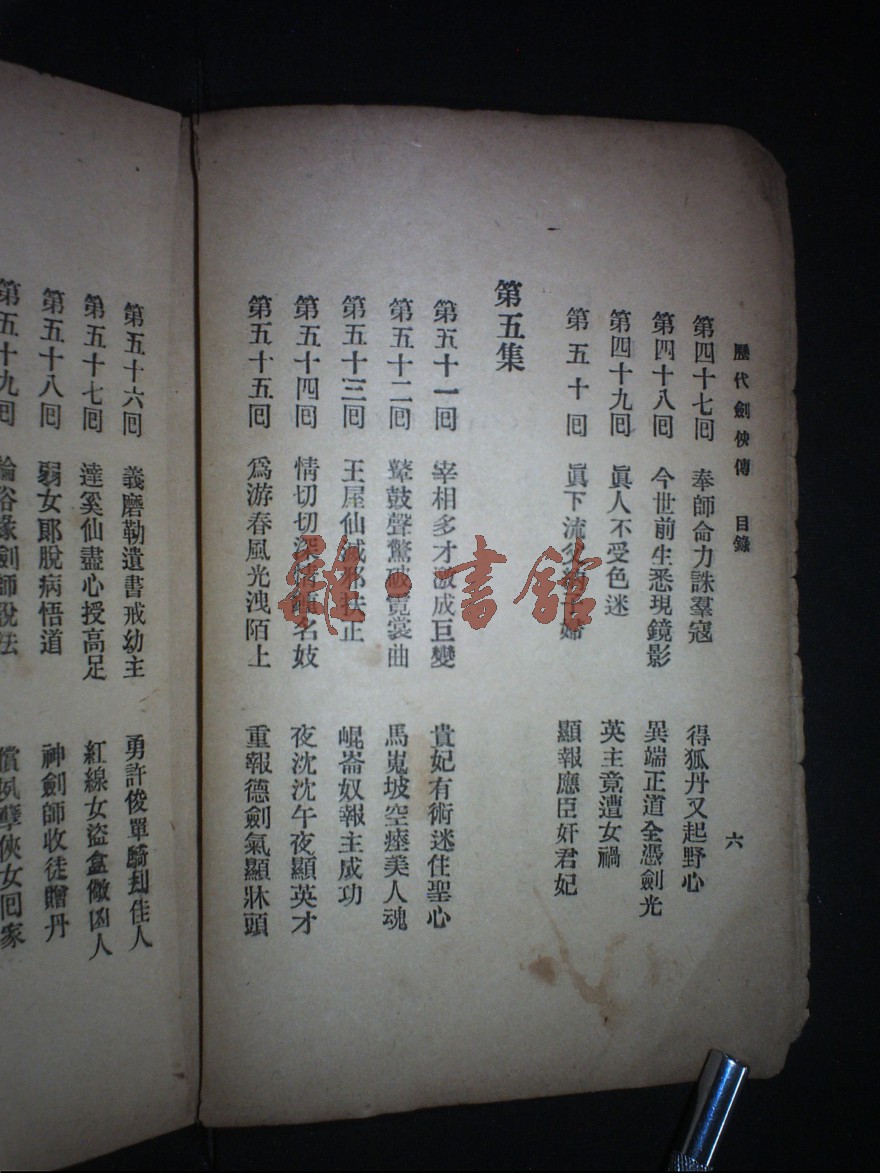 歷代劍俠傳 目錄 六
第四十七回 奉師命力誅羣寇 得狐丹又起野心
第四十八回 今世前生悉現鏡影 異端正道全憑劍光
第四十九回 眞人不受色迷 英主竟遭女禍
第五十回 眞下流 婦 顯報應臣奸君妃
第五集
第五十一回 宰相多才激成巨變 貴妃有術迷住聖心
第五十二回 鼙鼓聲驚破霓裳曲 馬嵬坡空瘞美人魂
第五十三回 王屋仙滅邪扶正 崐崙奴報主成功
第五十四回 情切切深 名妓 夜沈沈午夜顯英才
第五十五回 爲游春風光洩陌上 重報德劍氣顯牀頭
第五十六回 義磨勒遺書戒幼主 勇許俊單騎刦佳人
第五十七回 達奚仙盡心授高足 紅線女盜盒儆凶人
第五十八回 弱女郎脫病悟道 神劍師收徒贈丹
第五十九回 劍師說法 償夙孽俠女回家
雜·書館